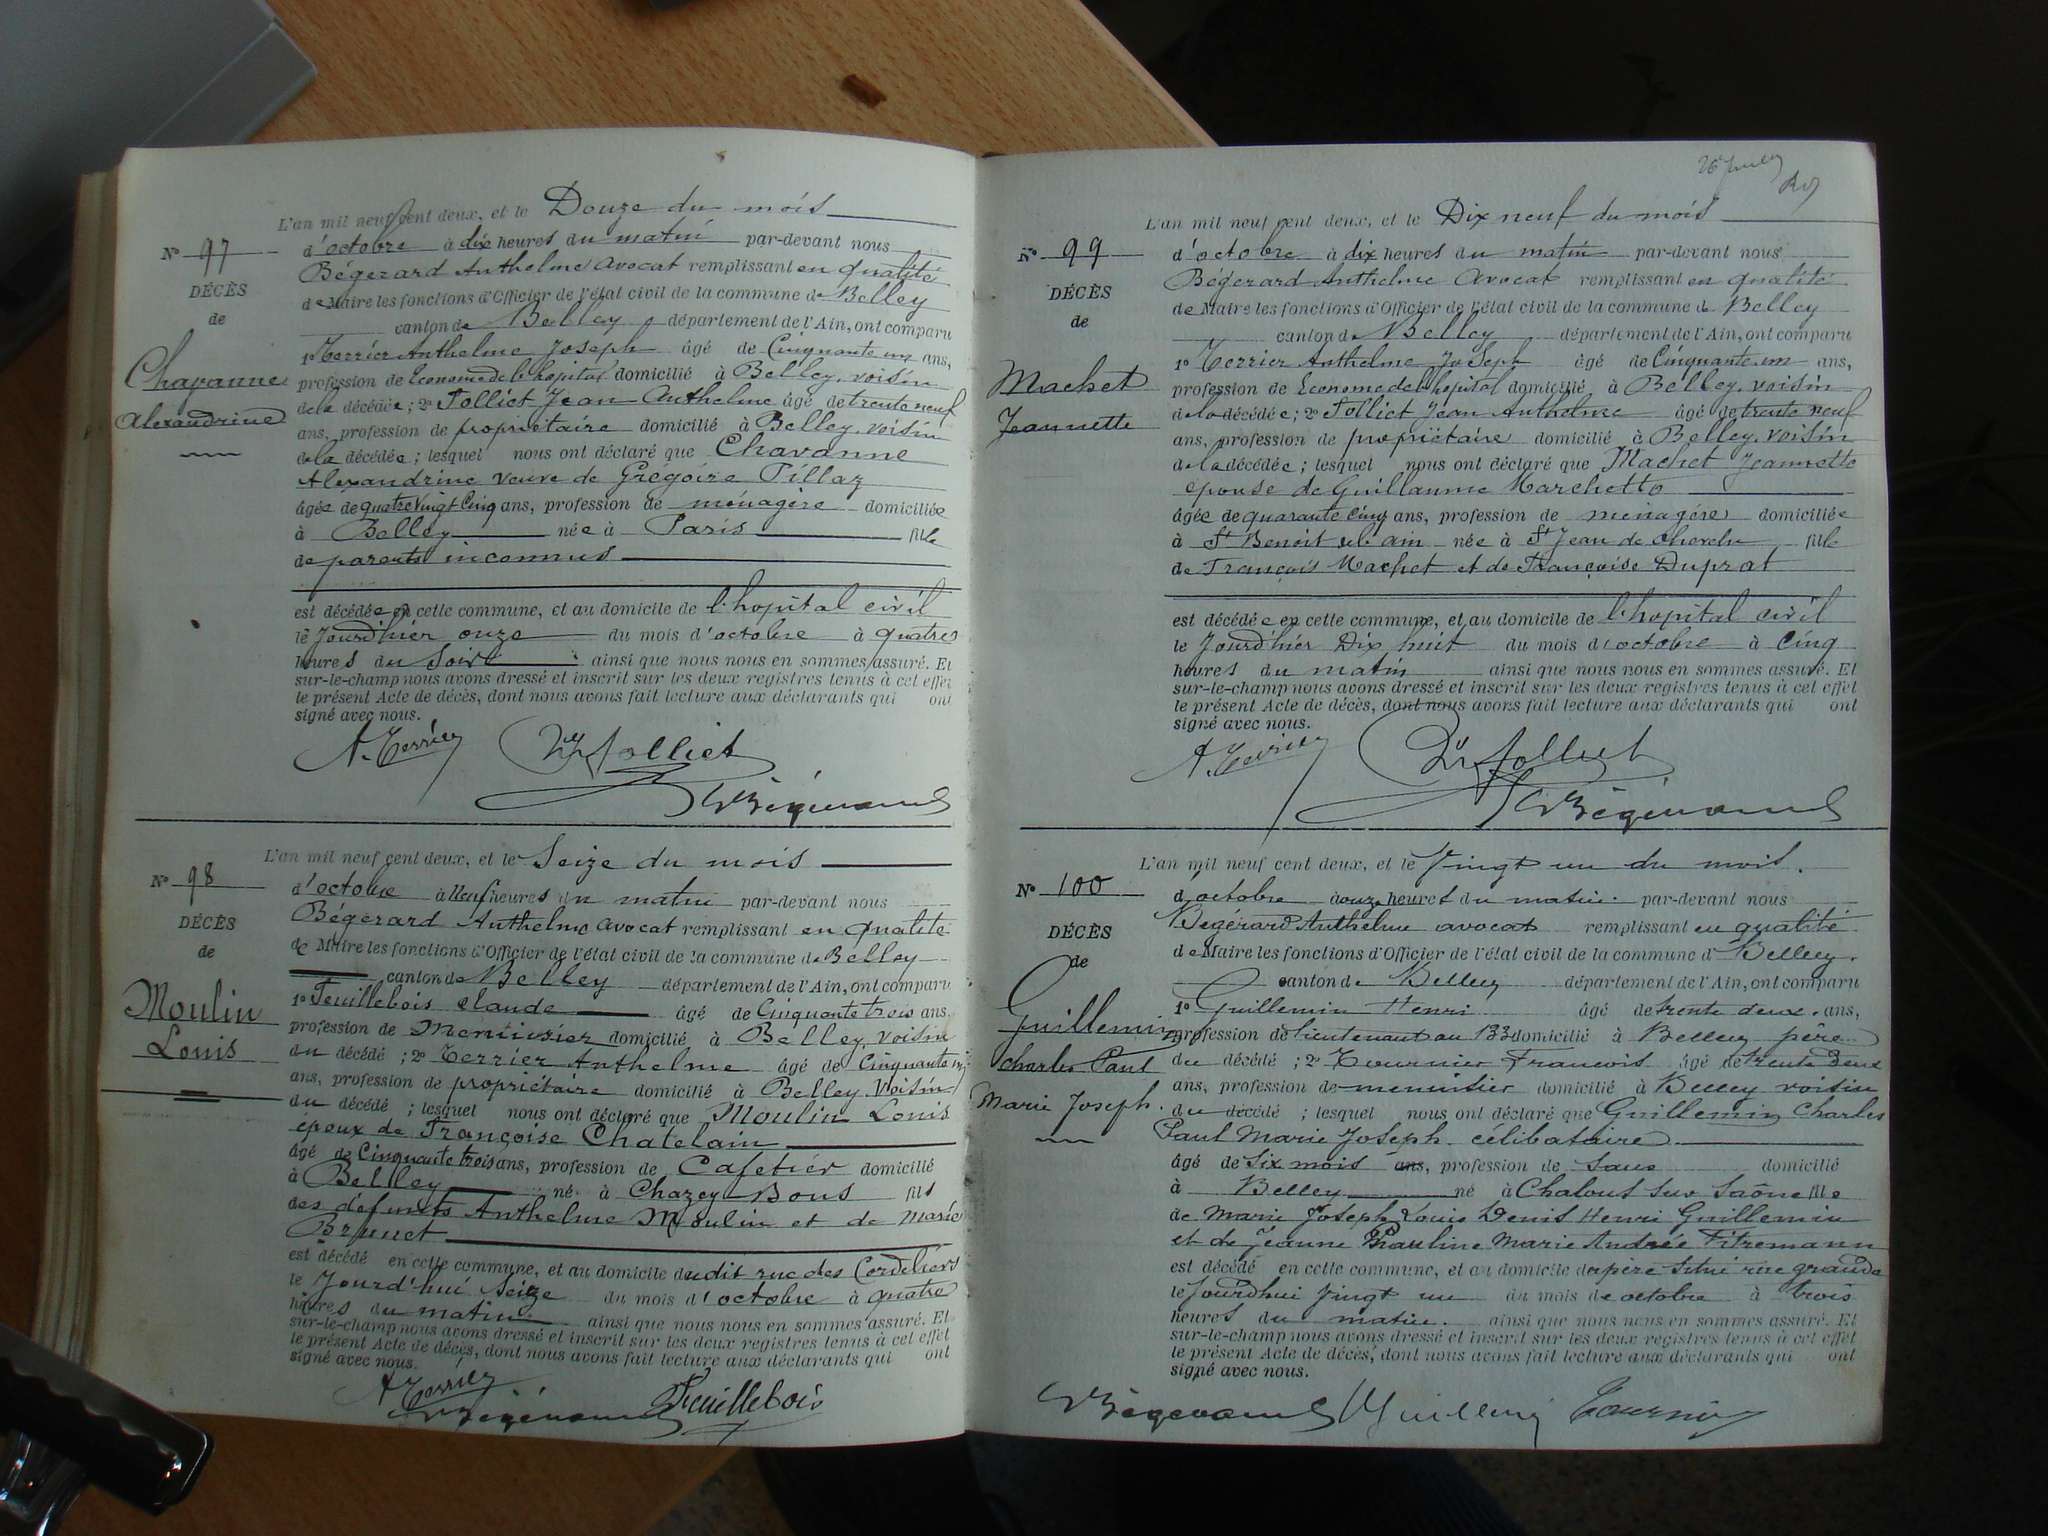 L'an mil neuf cent deux, et le Douze du mois
N° 97
d'octobre à dix heures du matin par-devant nous
Bégerard Anthelme Avocat remplissant en qualité
DÉCÈS
de Maire les fonctions d'Officier de l'état civil de la commune de Belley
de
canton de Belley département de l'Ain, ont comparu
1° Terrier Anthelme Joseph âgé de Cinquante un ans,
Chavanne
profession de Econome de l'hopital domicilié à Belley, voisin
Alexandrine
de la décédée; 2° Tolliet Jean Anthelme âgé de trente neuf
ans, profession de propriétaire domicilié à Belley, voisin
de la décédée; lesquel nous ont déclaré que Chavanne
Alexandrine veuve de Grégoire Pillaz
âgée de quatre Vingt Cinq ans, profession de ménagère domiciliée
à Belley née à Paris fille
de parents inconnus
est décédée en cette commune, et au domicile de l'hopital civil
le Jourd'hier onze du mois d'octobre à quatres
heures du Soir ainsi que nous nous en sommes assuré. Et
sur-le-champ nous avons dressé et inscrit sur les deux registres tenus à cet effet
le présent Acte de décès, dont nous avons fait lecture aux déclarants qui ont
signé avec nous.
A. Terrier Tolliet
L'an mil neuf cent deux, et le Seize du mois
N° 98
d'octobre à Neuf heures du matin par-devant nous
Bégerard Anthelme Avocat remplissant en qualité
DÉCÈS
de Maire les fonctions d'Officier de l'état civil de la commune de Belley
de
canton de Belley département de l'Ain, ont comparu
1° Feuillebois Claude âgé de Cinquante trois ans,
Moulin
profession de Menuisier domicilié à Belley, voisin
Louis
du décédé; 2° Terrier Anthelme âgé de Cinquante
ans, profession de propriétaire domicilié à Belley, Voisin
du décédé; lesquel nous ont déclaré que Moulin Louis
époux de Françoise Chatelain
âgé de Cinquante trois ans, profession de Cafetier domicilié
à Belley né à Chazey-Bons fils
des défunts Anthelme Moulin et de Marie
Brunet
est décédé en cette commune, et au domicile dudit rue des Cordeliers
le Jourd'hui Seize du mois d'octobre à quatre
heures du matin ainsi que nous nous en sommes assuré. Et
sur-le-champ nous avons dressé et inscrit sur les deux registres tenus à cet effet
le présent Acte de décès, dont nous avons fait lecture aux déclarants qui ont
signé avec nous.
A. Terrier Feuillebois
L'an mil neuf cent deux, et le Dix neuf du mois
N° 99
d'octobre à dix heures du matin par-devant nous
Bégerard Anthelme Avocat remplissant en qualité
DÉCÈS
de Maire les fonctions d'Officier de l'état civil de la commune de Belley
de
canton de Belley département de l'Ain, ont comparu
1° Terrier Anthelme JoSeph âgé de Cinquante un ans,
Machet
profession de Econome de l'hopital domicilié à Belley, voisin
Jeannette
de la décédée; 2° Tolliet Jean Anthelme âgé de trente neuf
ans, profession de propriétaire domicilié à Belley, voisin
de la décédée; lesquel nous ont déclaré que Machet Jeannette
epouse de Guillaume Marchetto
âgée de quarante Cinq ans, profession de ménagère domiciliée
à St Benoit née à St Jean de fille
de François Machet et de Françoise Duprat
est décédée en cette commune, et au domicile de l'hopital civil
le Jourd'hier Dix huit du mois d'octobre à Cinq
heures du matin ainsi que nous nous en sommes assuré. Et
sur-le-champ nous avons dressé et inscrit sur les deux registres tenus à cet effet
le présent Acte de décès, dont nous avons fait lecture aux déclarants qui ont
signé avec nous.
A. Terrier Tolliet
L'an mil neuf cent deux, et le Vingt un du mois.
N° 100
d'octobre à onze heures du matin par-devant nous
Bégérard Anthelme avocat remplissant en qualité
DÉCÈS
de Maire les fonctions d'Officier de l'état civil de la commune d Belley.
de
canton de Belley département de l'Ain, ont comparu
1° Guillemin Henri âgé de trente deux ans,
Guillemin
profession de lieutenant au 133 domicilié à Belley père
Charles Paul
du décédé; 2° Tournier François âgé de trente Deux
ans, profession de menuisier domicilié à Belley voisin
Marie Joseph.
du décédé; lesquel nous ont déclaré que Guillemin Charles
Paul Marie Joseph célibataire
âgé de Six mois ans, profession de Sans domicilié
à Belley né à Chalons sur Saône fils
de Marie Joseph Louis Denis Henri Guillemin
et de Jeanne Pauline Marie Andrée Fitremann
est décédé en cette commune, et au domicile du père situé rue grande
le Jourd'hui Vingt un du mois de octobre à trois
heures du matin. ainsi que nous nous en sommes assuré. Et
sur-le-champ nous avons dressé et inscrit sur les deux registres tenus à cet effet
le présent Acte de décès, dont nous avons fait lecture aux déclarants qui ont
signé avec nous.
Guillemin Tournier